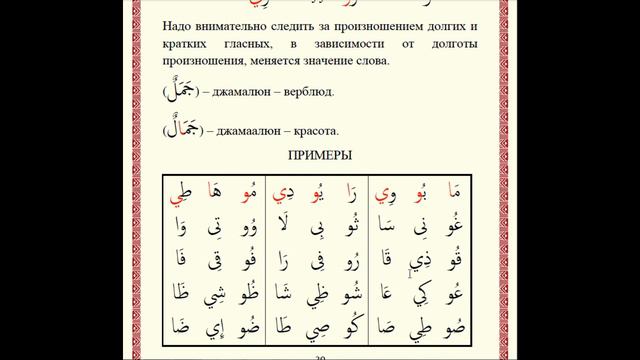 Надо внимательно следить за произношением долгих и
кратких гласных, в зависимости от долготы
произношения, меняется значение слова.
(جَمَلٌ) – джамалюн – верблюд.
(جَمَالٌ) – джамаалюн – красота.
ПРИМЕРЫ
مَا بُو وِي رَا يُو دِي مُو هَا طِي
غُو نِي سَا ثُو بِى لَا وُو تِى وَا
قُو ذِي قَا رُو فِى رَا فُو قِى فَا
عُو كِي عَا شُو ظِي شَا ظُو شِي ظَا
صُو طِي صَا كُو صِي طَا ضُو إِي ضَا